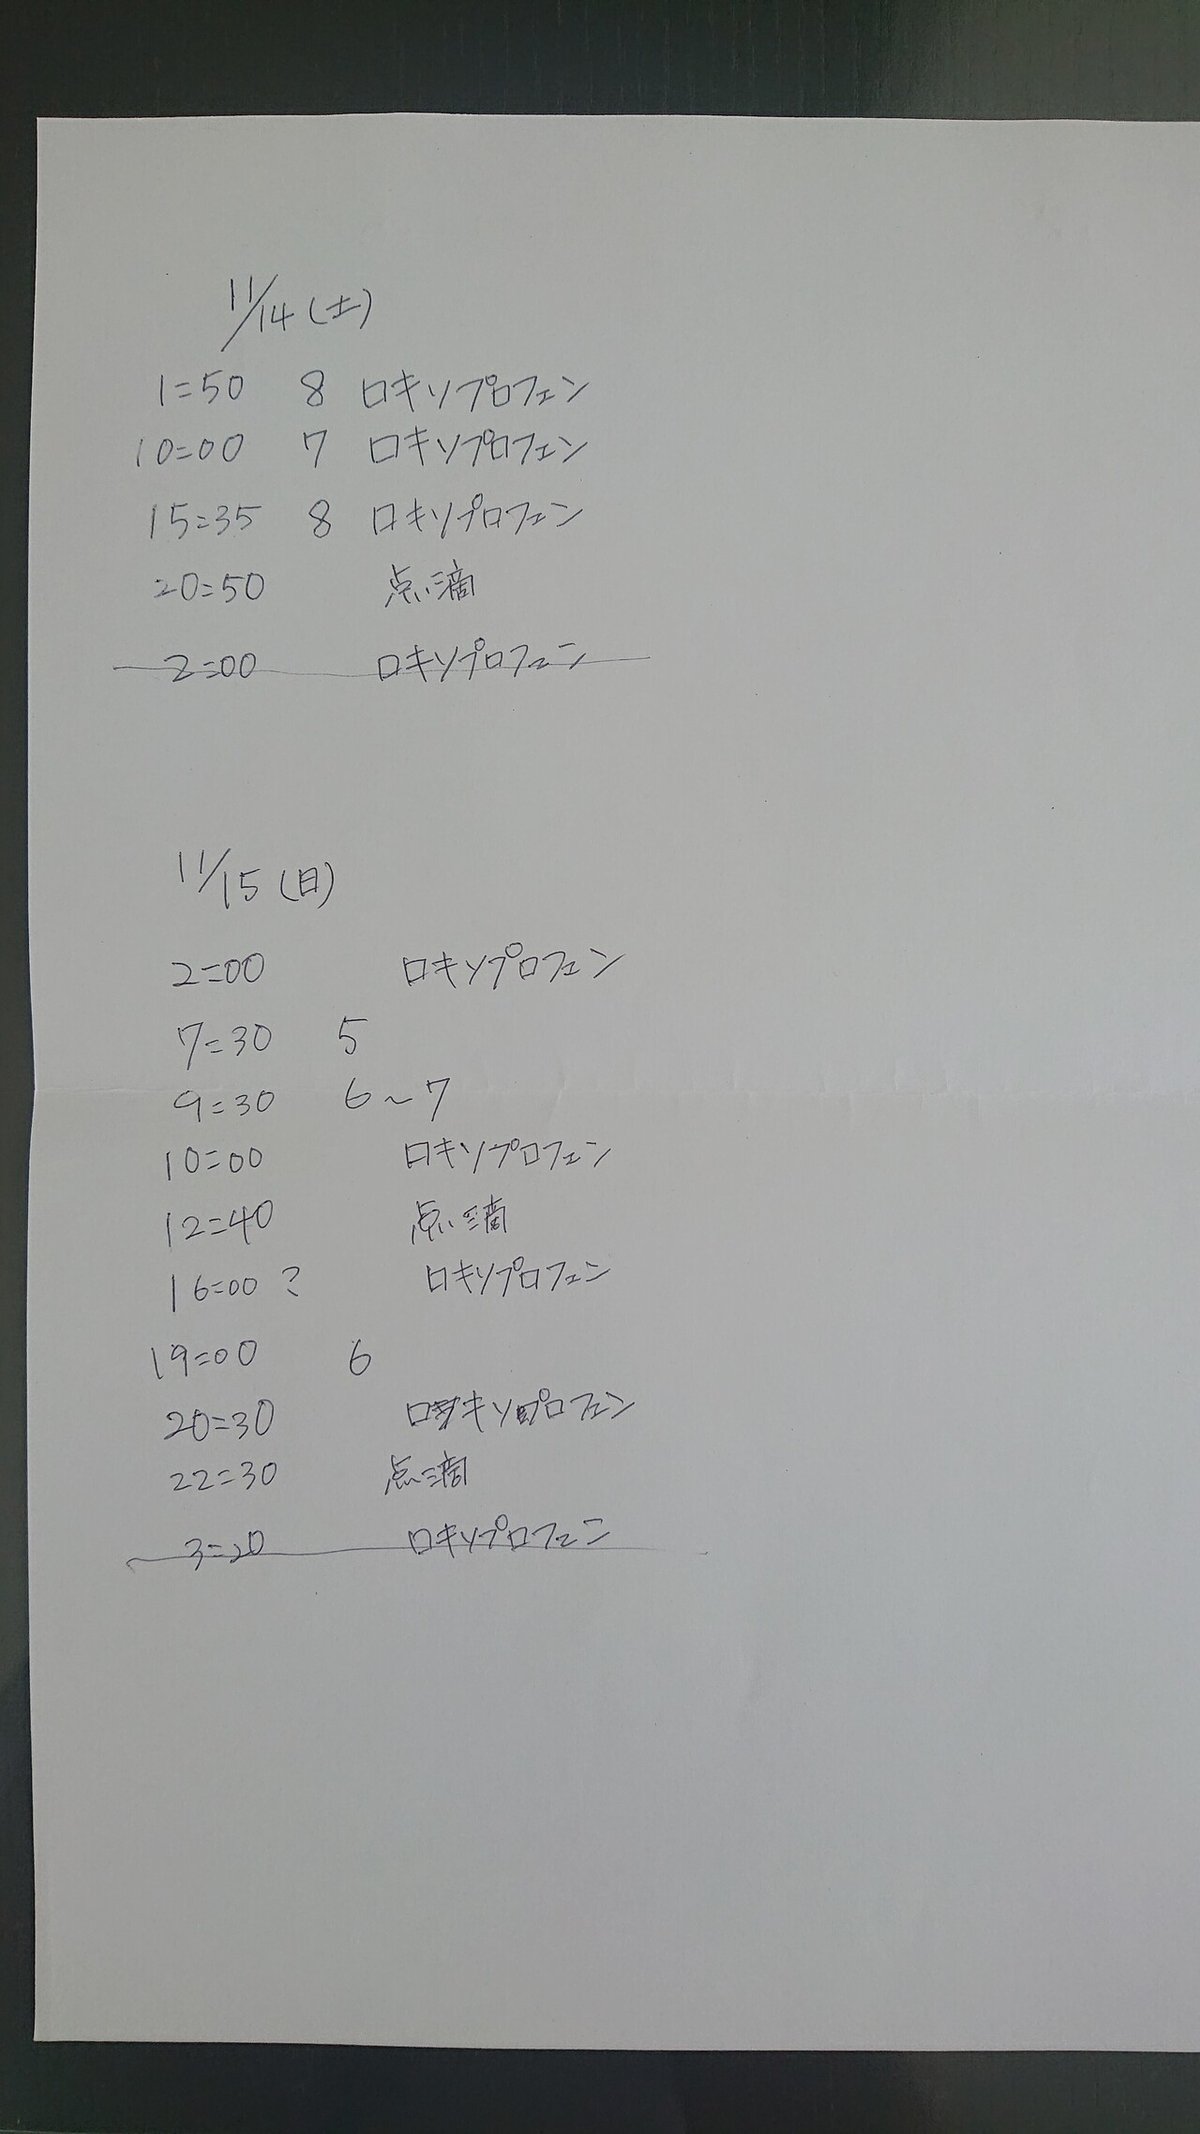 11/14(土)
1:50 8 ロキソプロフェン
10:00 7 ロキソプロフェン
15:35 8 ロキソプロフェン
20:50 点滴
2:00 ロキソプロフェン
11/15(日)
2:00 ロキソプロフェン
7:30 5
9:30 6~7
10:00 ロキソプロフェン
12:40 点滴
16:00? ロキソプロフェン
19:00 6
20:30 ロキソプロフェン
22:30 点滴
3:20 ロキソプロフェン